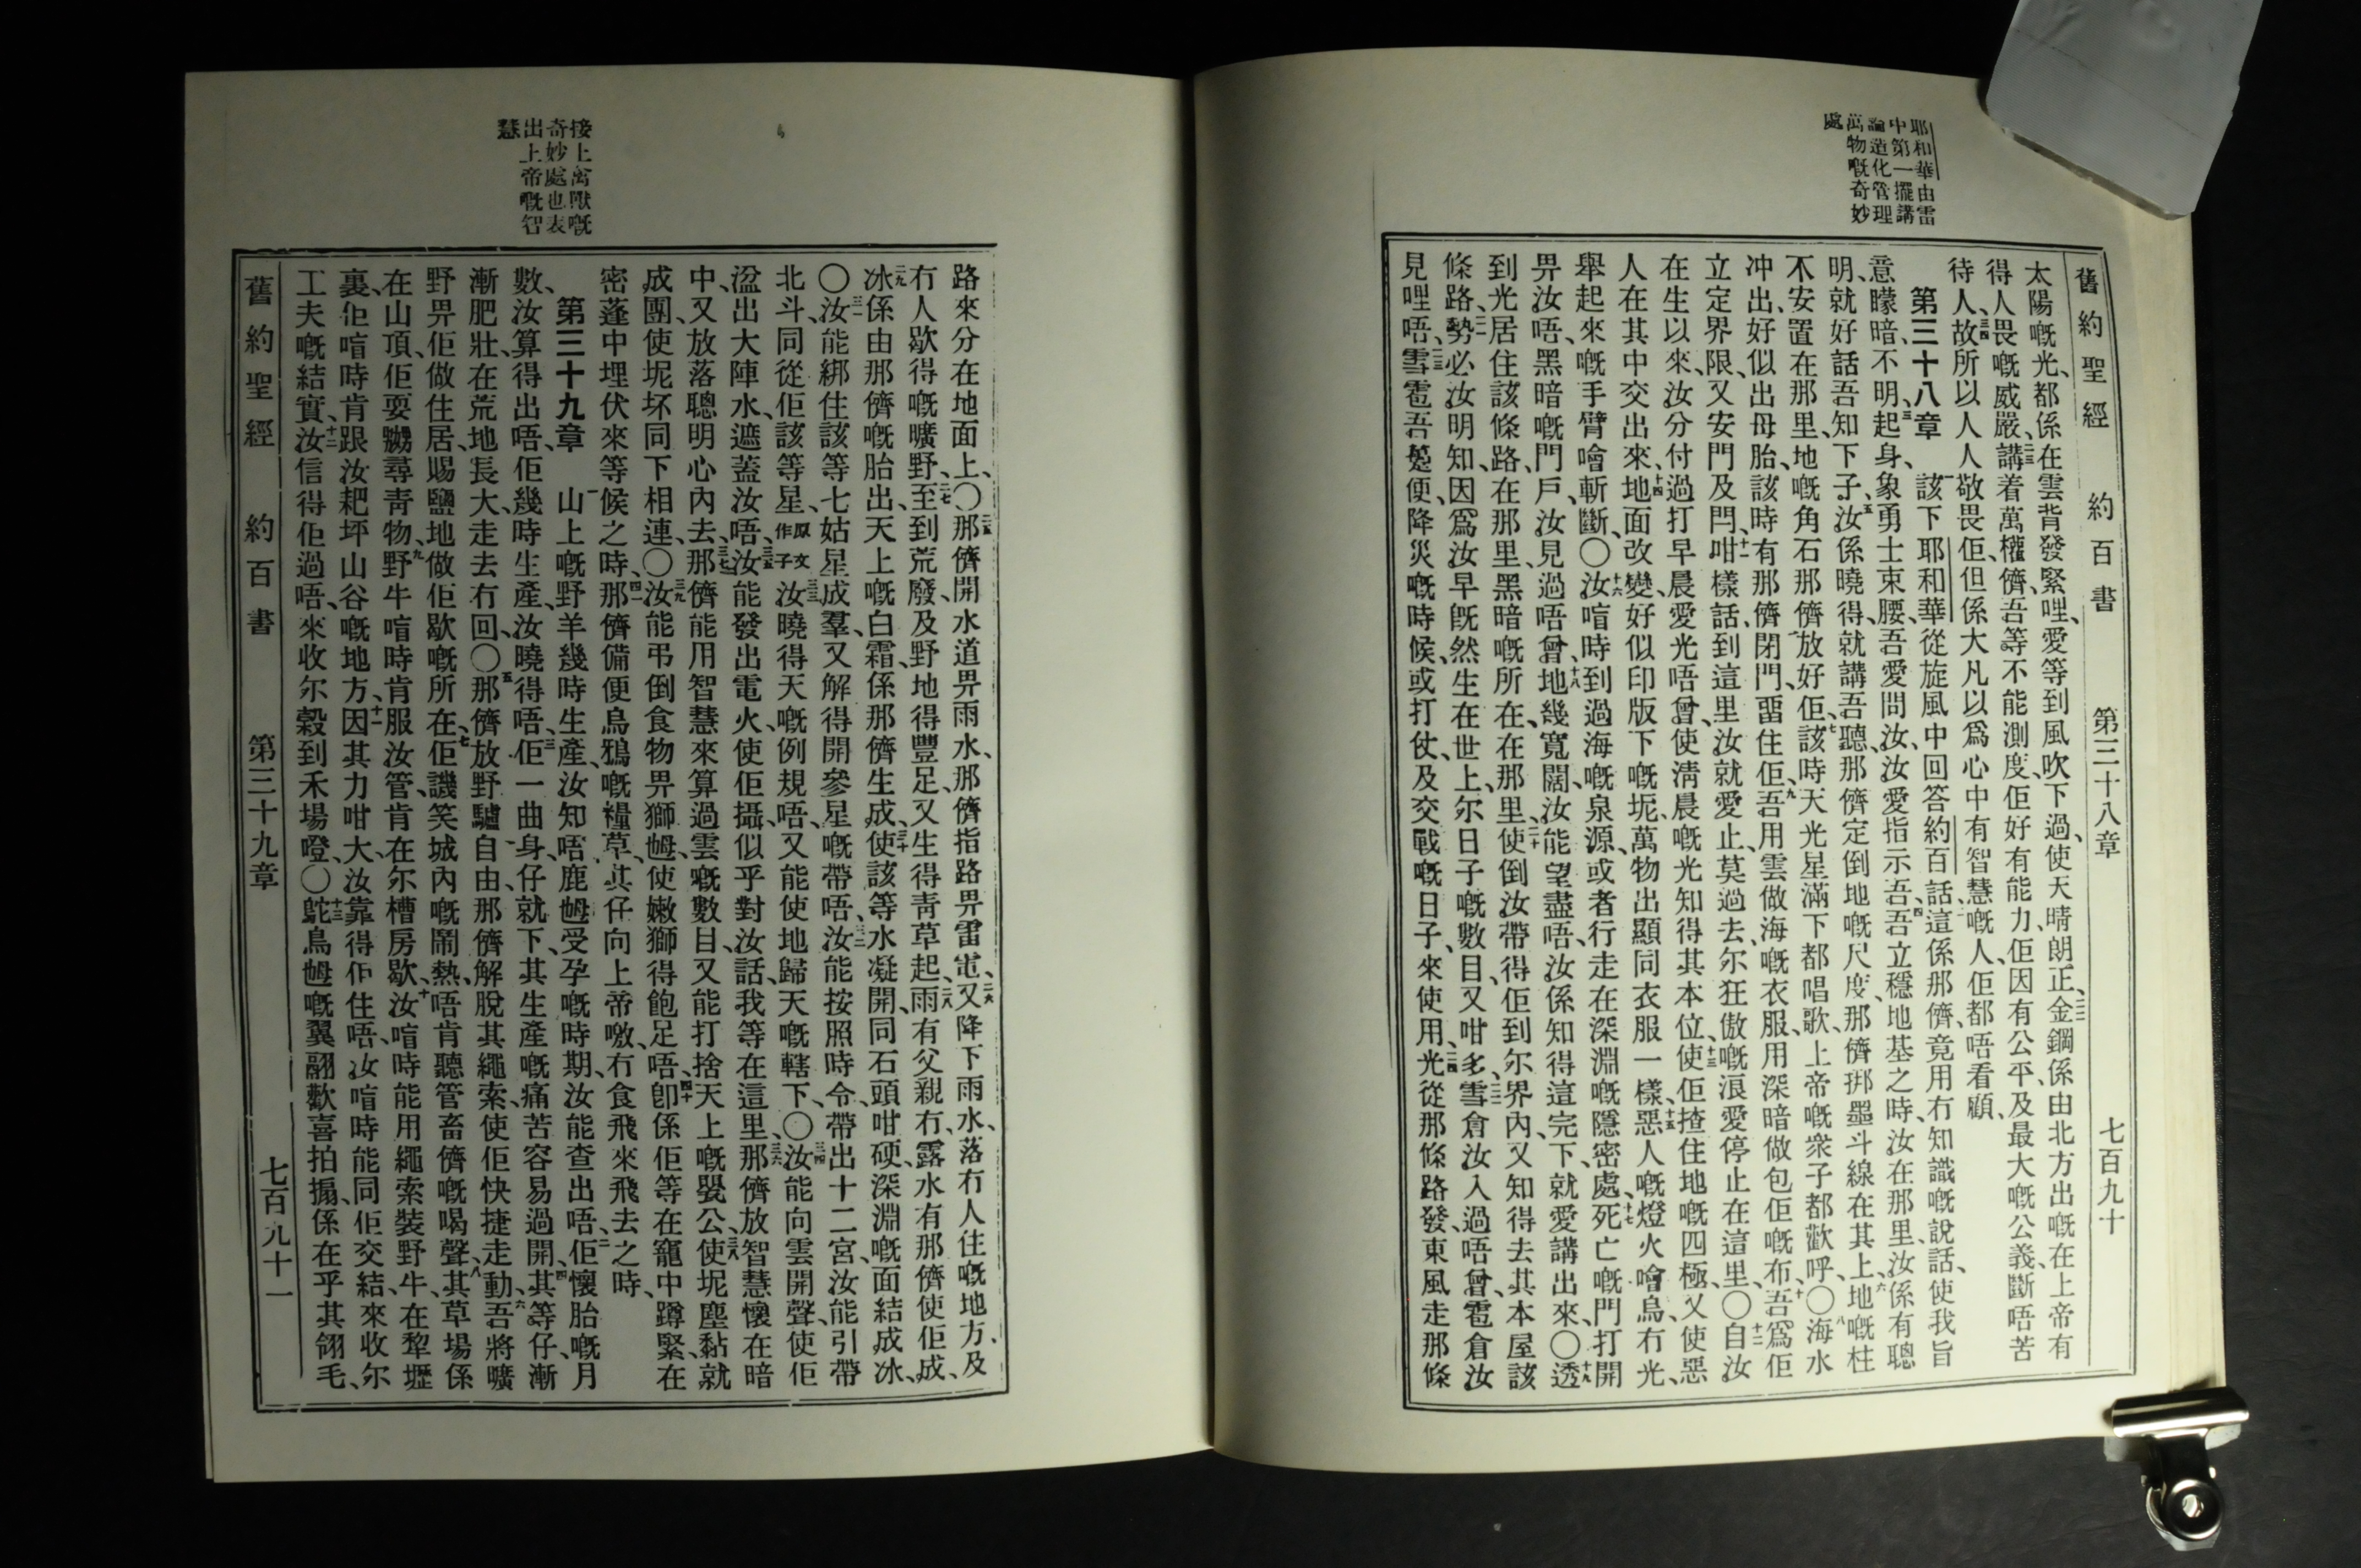 舊約聖經 約百書 第三十八章 七百九十
耶和華由雷
中第一擺講
論造化管理
萬物嘅奇妙
處
太陽嘅光、都係在雲背發緊哩、愛等到風吹下過、使天晴朗正、二二金鋼係由北方出嘅在上帝有
得人畏嘅威嚴、二三講着萬權儕、吾等不能測度、佢好有能力、佢因有公平、及最大嘅公義、斷唔苦
待人、二四故所以人人敬畏佢、但係大凡以爲心中有智慧嘅人、佢都唔看顧、
第三十八章 一該下耶和華從旋風中回答約百話、二這係那儕、竟用冇知識嘅說話、使我旨
意矇暗、不明、三起身、象勇士束腰、吾愛問汝、汝愛指示吾、四吾立穩地基之時、汝在那里、汝係有聰
明、就好話吾知下子、五汝係曉得、就講吾聽、那儕定倒地嘅尺度、那儕掷墨斗線在其上、六地嘅柱
不安置在那里、地嘅角石那儕放好佢、七該時天光星滿下都唱歌、上帝嘅衆子都歡呼、〇八海水
冲出、好似出母胎、該時有那儕閉門、畱住佢、九吾用雲做海嘅衣服、用深暗做包佢嘅布、十吾爲佢
立定界限、又安門及閂、十一咁樣話、到這里汝就愛止、莫過去、尔狂傲嘅浪、愛停止在這里、〇十二自汝
在生以來、汝分付過打早晨愛光唔曾、使淸晨嘅光知得其本位、十三使佢揸住地嘅四極、又使惡
人在其中交出來、十四地面改變、好似印版下嘅坭、萬物出顯同衣服一樣、十五惡人嘅燈火噲烏冇光、
舉起來嘅手臂噲斬斷、〇十六汝喧時到過海嘅泉源、或者行走在深淵嘅隱密處、十七死亡嘅門打開
畀汝唔、黑暗嘅門戶、汝見過唔曾、十八地幾寬闊、汝能望盡唔、汝係知得這完下、就愛講出來、〇十九透
到光居住該條路、在那里、黑暗嘅所在、在那里、二十使倒汝帶得佢到尔界內、又知得去其本屋該
條路、二一勢必汝明知、因爲汝早旣然生在世上、尔日子嘅數目、又咁多、二二雪倉汝入過唔曾、雹倉汝
見哩唔、二三雪雹吾㔻便、降災嘅時候、或打仗、及交戰嘅日子、來使用、二四光從那條路發、東風走那條
接上禽獸嘅
奇妙處也表
出上帝嘅智
慧
路來分在地面上、〇二五那儕開水道畀雨水、那儕指路畀雷電、二六又降下雨水、落冇人住嘅地方、及
冇人歇得嘅曠野、二七至到荒廢、及野地得豐足、又生得靑草起、二八雨有父親冇、露水有那儕使佢成、
二九冰係由那儕嘅胎出、天上嘅白霜、係那儕生成、三十使該等水凝開、同石頭咁硬、深淵嘅面結成冰、
〇三一汝能綁住該等七姑星成羣、又解得開參星嘅帶唔、三二汝能按照時令、帶出十二宮、汝能引帶
北斗、同從佢該等星原文作子三三汝曉得天嘅例規唔、又能使地歸天嘅轄下、〇三四汝能向雲開聲、使佢
溢出大陣水、遮蓋汝唔、三五汝能發出電火、使佢攝似乎對汝話、我等在這里、三六那儕放智慧懷在暗
中、又放落聰明心內去、三七那儕能用智慧來算過雲嘅數目、又能打捨天上嘅甖公、三八使坭塵黏就
成團、使坭坏同下相連、〇三九汝能弔倒食物畀獅𡜵、使嫩獅得飽足唔、四十卽係佢等在竉中蹲緊、在
密蓬中埋伏來等候之時、四一那儕備便烏鴉嘅糧草、其仔向上帝噭、冇食飛來飛去之時、
第三十九章 一山上嘅野羊幾時生產、汝知唔、鹿𡜵受孕嘅時期、汝能查出唔、二佢懷胎嘅月
數、汝算得出唔、佢幾時生產、汝曉得唔、三佢一曲身、仔就下、其生產嘅痛苦、容易過開、四其等仔、漸
漸肥壯、在荒地長大、走去冇回、〇五那儕放野驢自由、那儕解脫其繩索、使佢快捷走動、六吾將曠
野畀佢做住居、賜鹽地做佢歇嘅所在、七佢譏笑城內嘅鬧熱、唔肯聽管畜儕嘅喝聲、八其草場係
在山頂、佢耍嬲尋靑物、九野牛喧時肯服汝管、肯在尔槽房歇、十汝喧時能用繩索裝野牛、在犂壢
裏、佢喧時肯跟汝耙坪山谷嘅地方、十一因其力咁大、汝靠得佢住唔、汝喧時能同佢交結、來收尔
工夫嘅結實、十二汝信得佢過唔、來收尔穀到禾場噔、〇十三鴕鳥𡜵嘅翼、翮歡喜拍搧、係在乎其翎毛、
舊約聖經 約百書 第三十九章 七百九十一